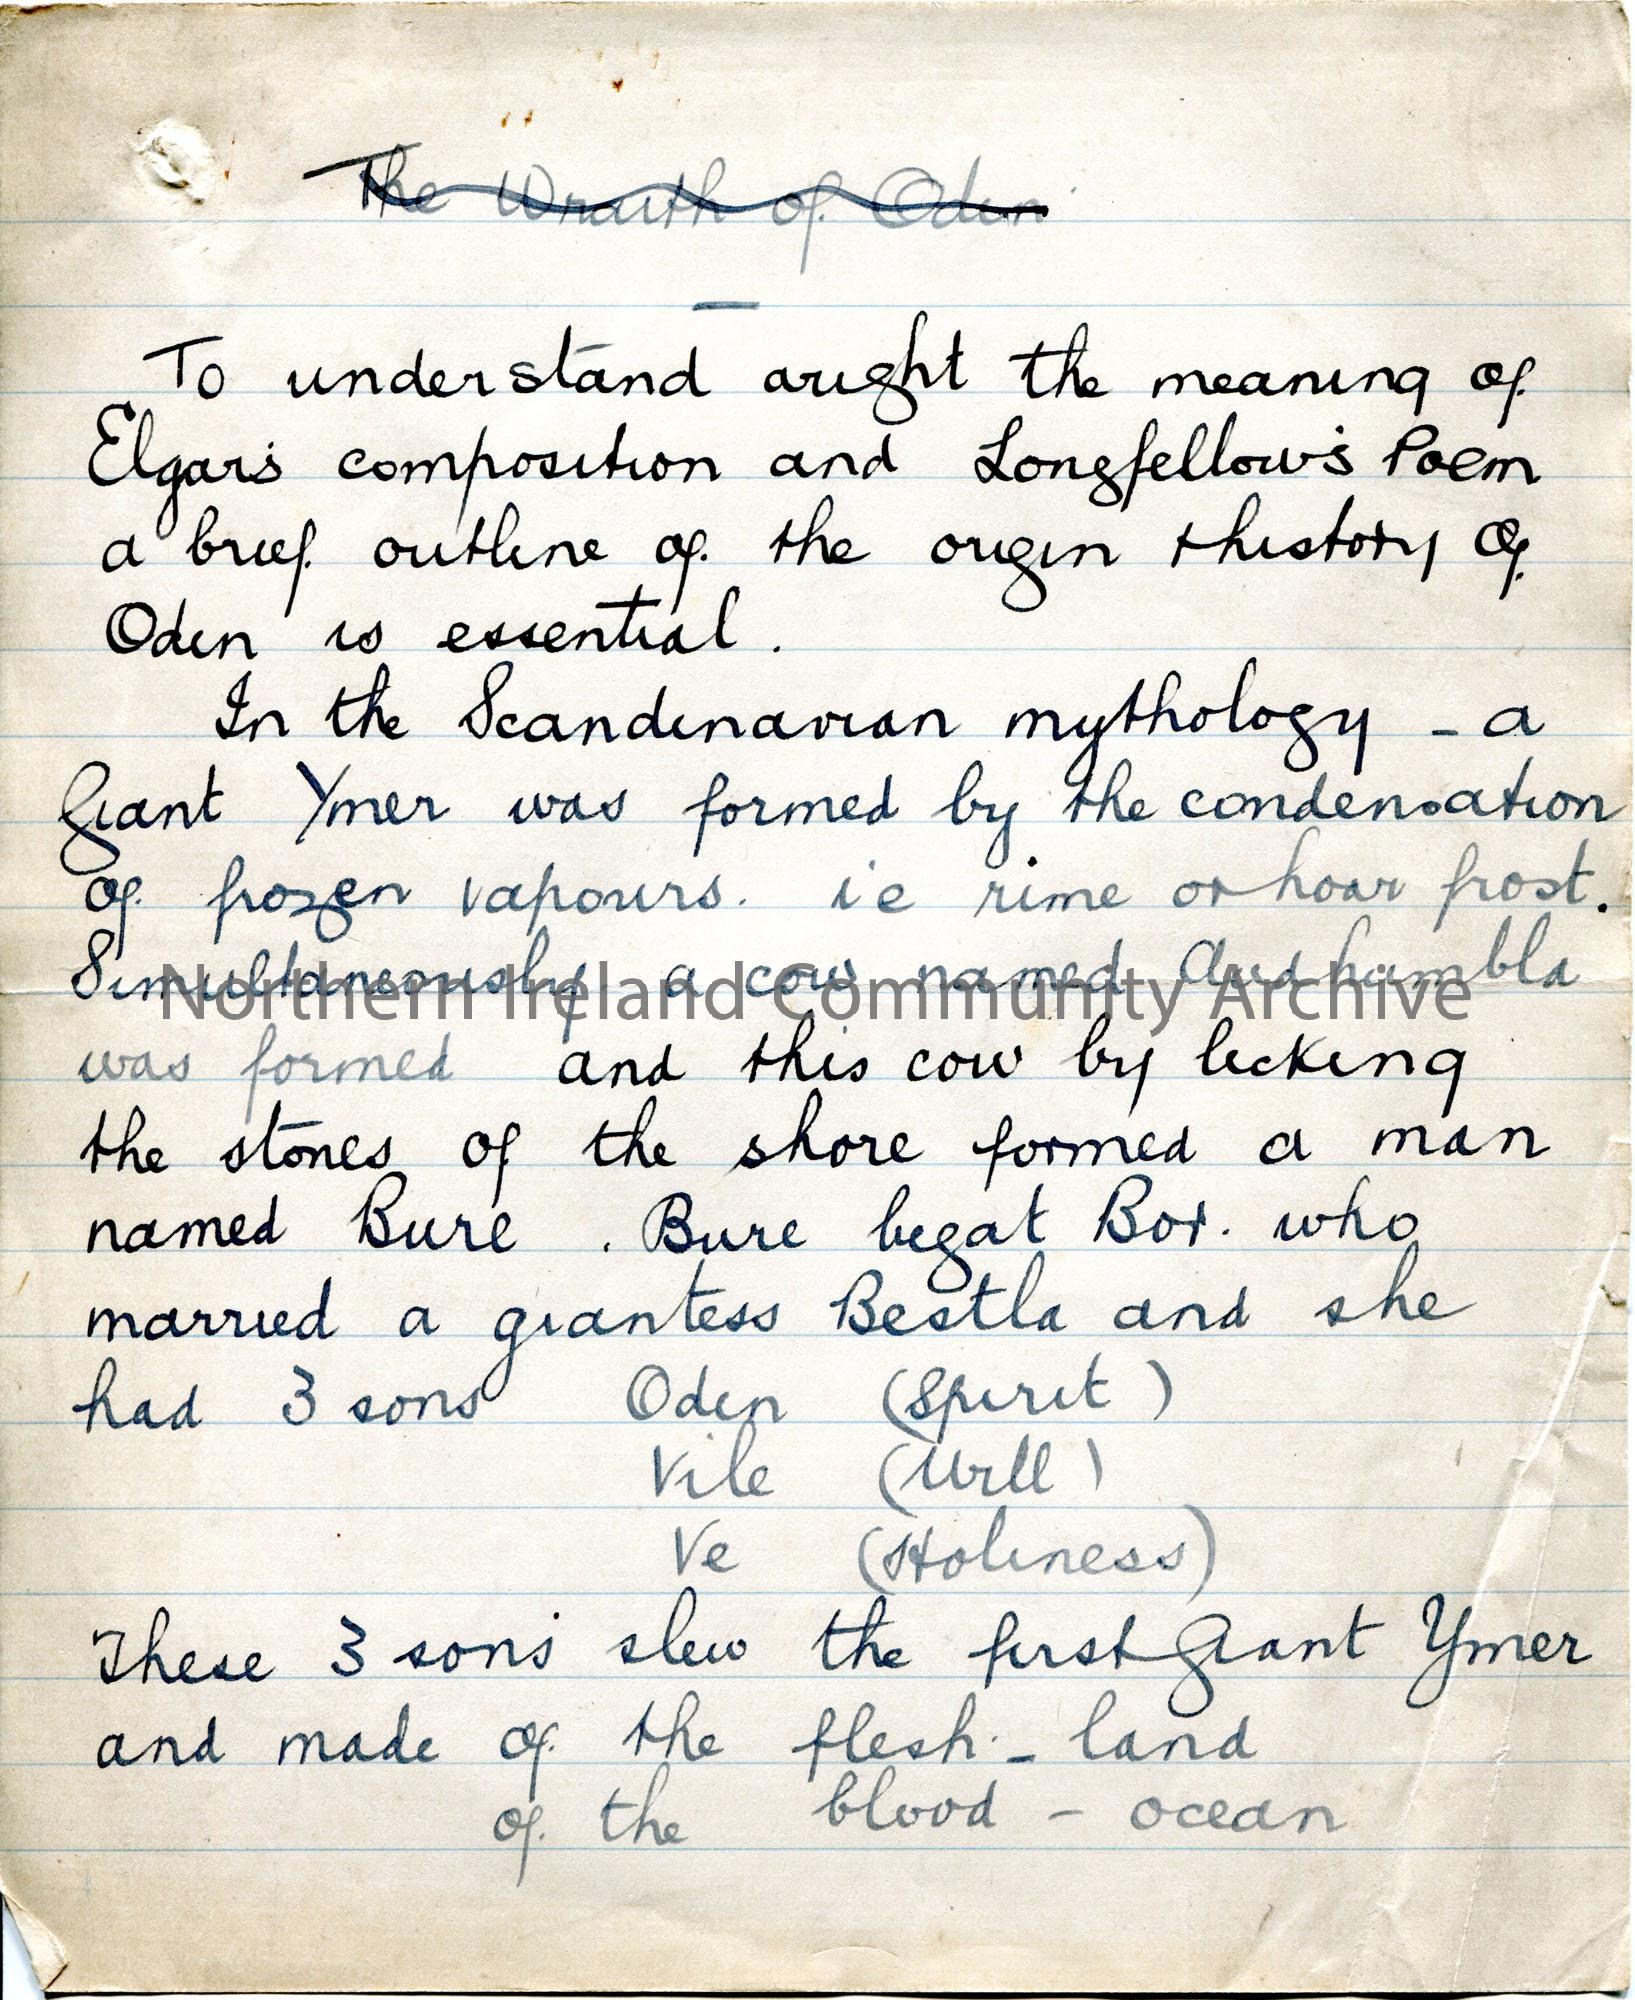 The Wraith of Oden
To understand aright the meaning of
Elgar's composition and Longfellow's Poem
a brief outline of the origin + history of
Oden is essential.
In the Scandinavian mythology - a
Giant Ymer was formed by the condensation
of frozen vapours. ie rime or hoar frost.
Simultaneously a cow named Audhumbla
Northern Ireland Community Archive
was formed and this cow by licking
the stones of the shore formed a man
named Bure. Bure begat Bor. who
married a giantess Bestla and she
had 3 sons Oden (Spirit)
Vile (Will)
Ve (Holiness)
These 3 sons slew the first Giant Ymer
and made of the flesh - land
of the blood - ocean